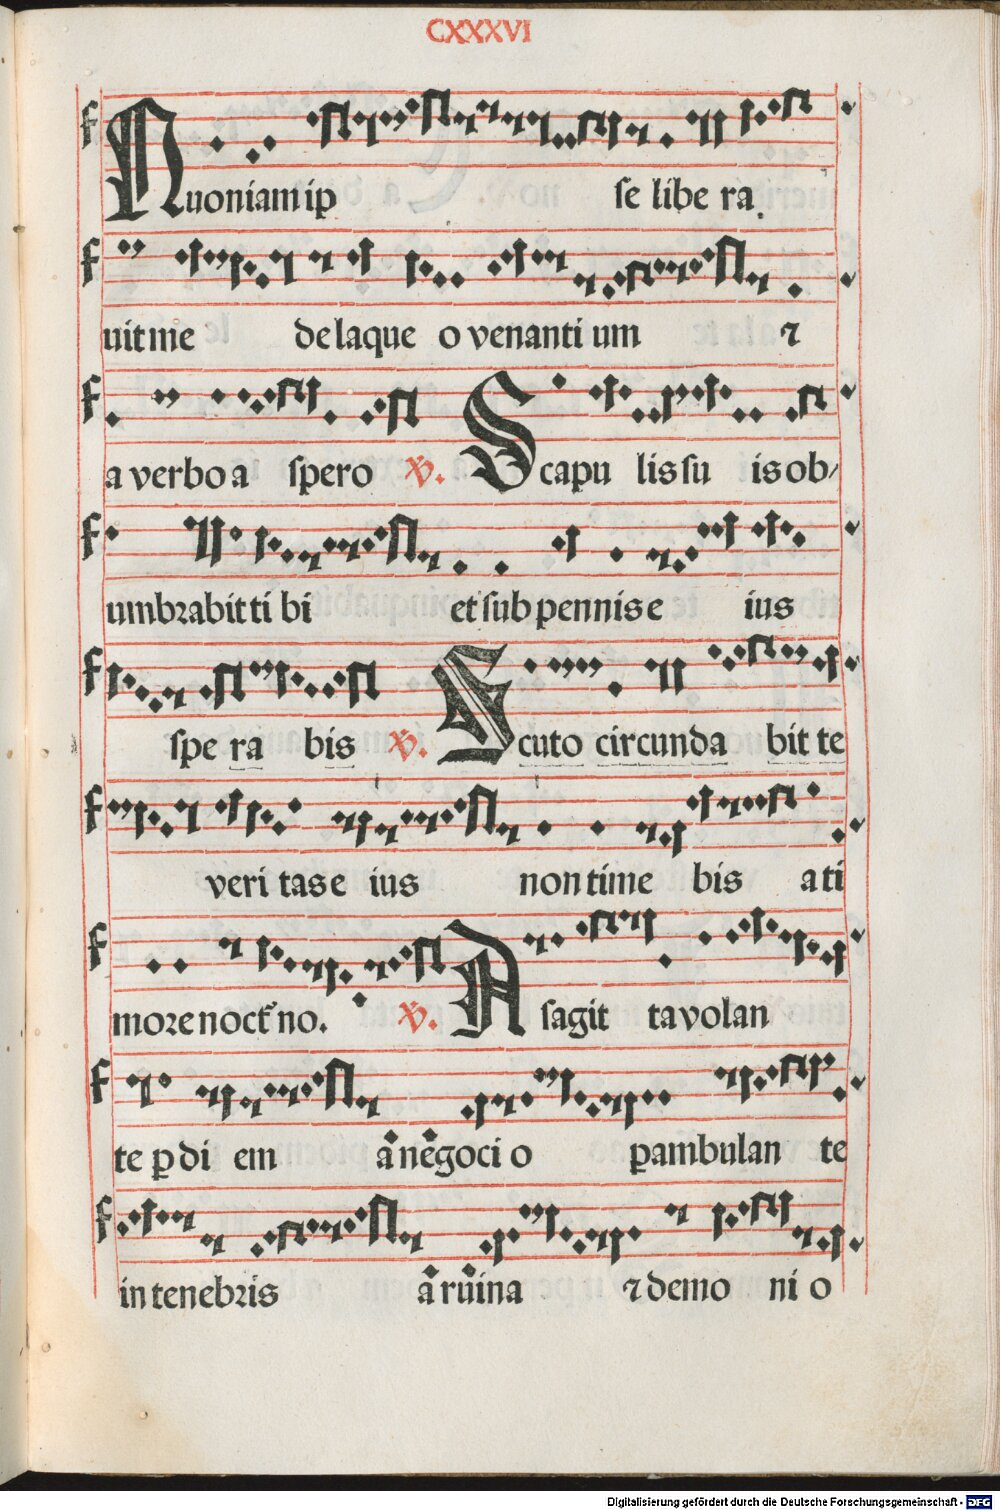 CXXXVI
Quoniam ip se libe ra
uit me de laque o venanti um ⁊
a verbo a spero ℣. Scapu lis su is ob/
umbrabit ti bi et sub pennis e ius
spe ra bis ℣. Scuto circunda bit te
veri tas e ius non time bis a ti
more noct̄ no. ℣. A sagit ta volan
te ꝑ di em ā nēgoci o ꝑambulan te
in tenebris ā rūina ⁊ demo ni o
Digitalisierung gefördert durch die Deutsche Forschungsgemeinschaft - DFG